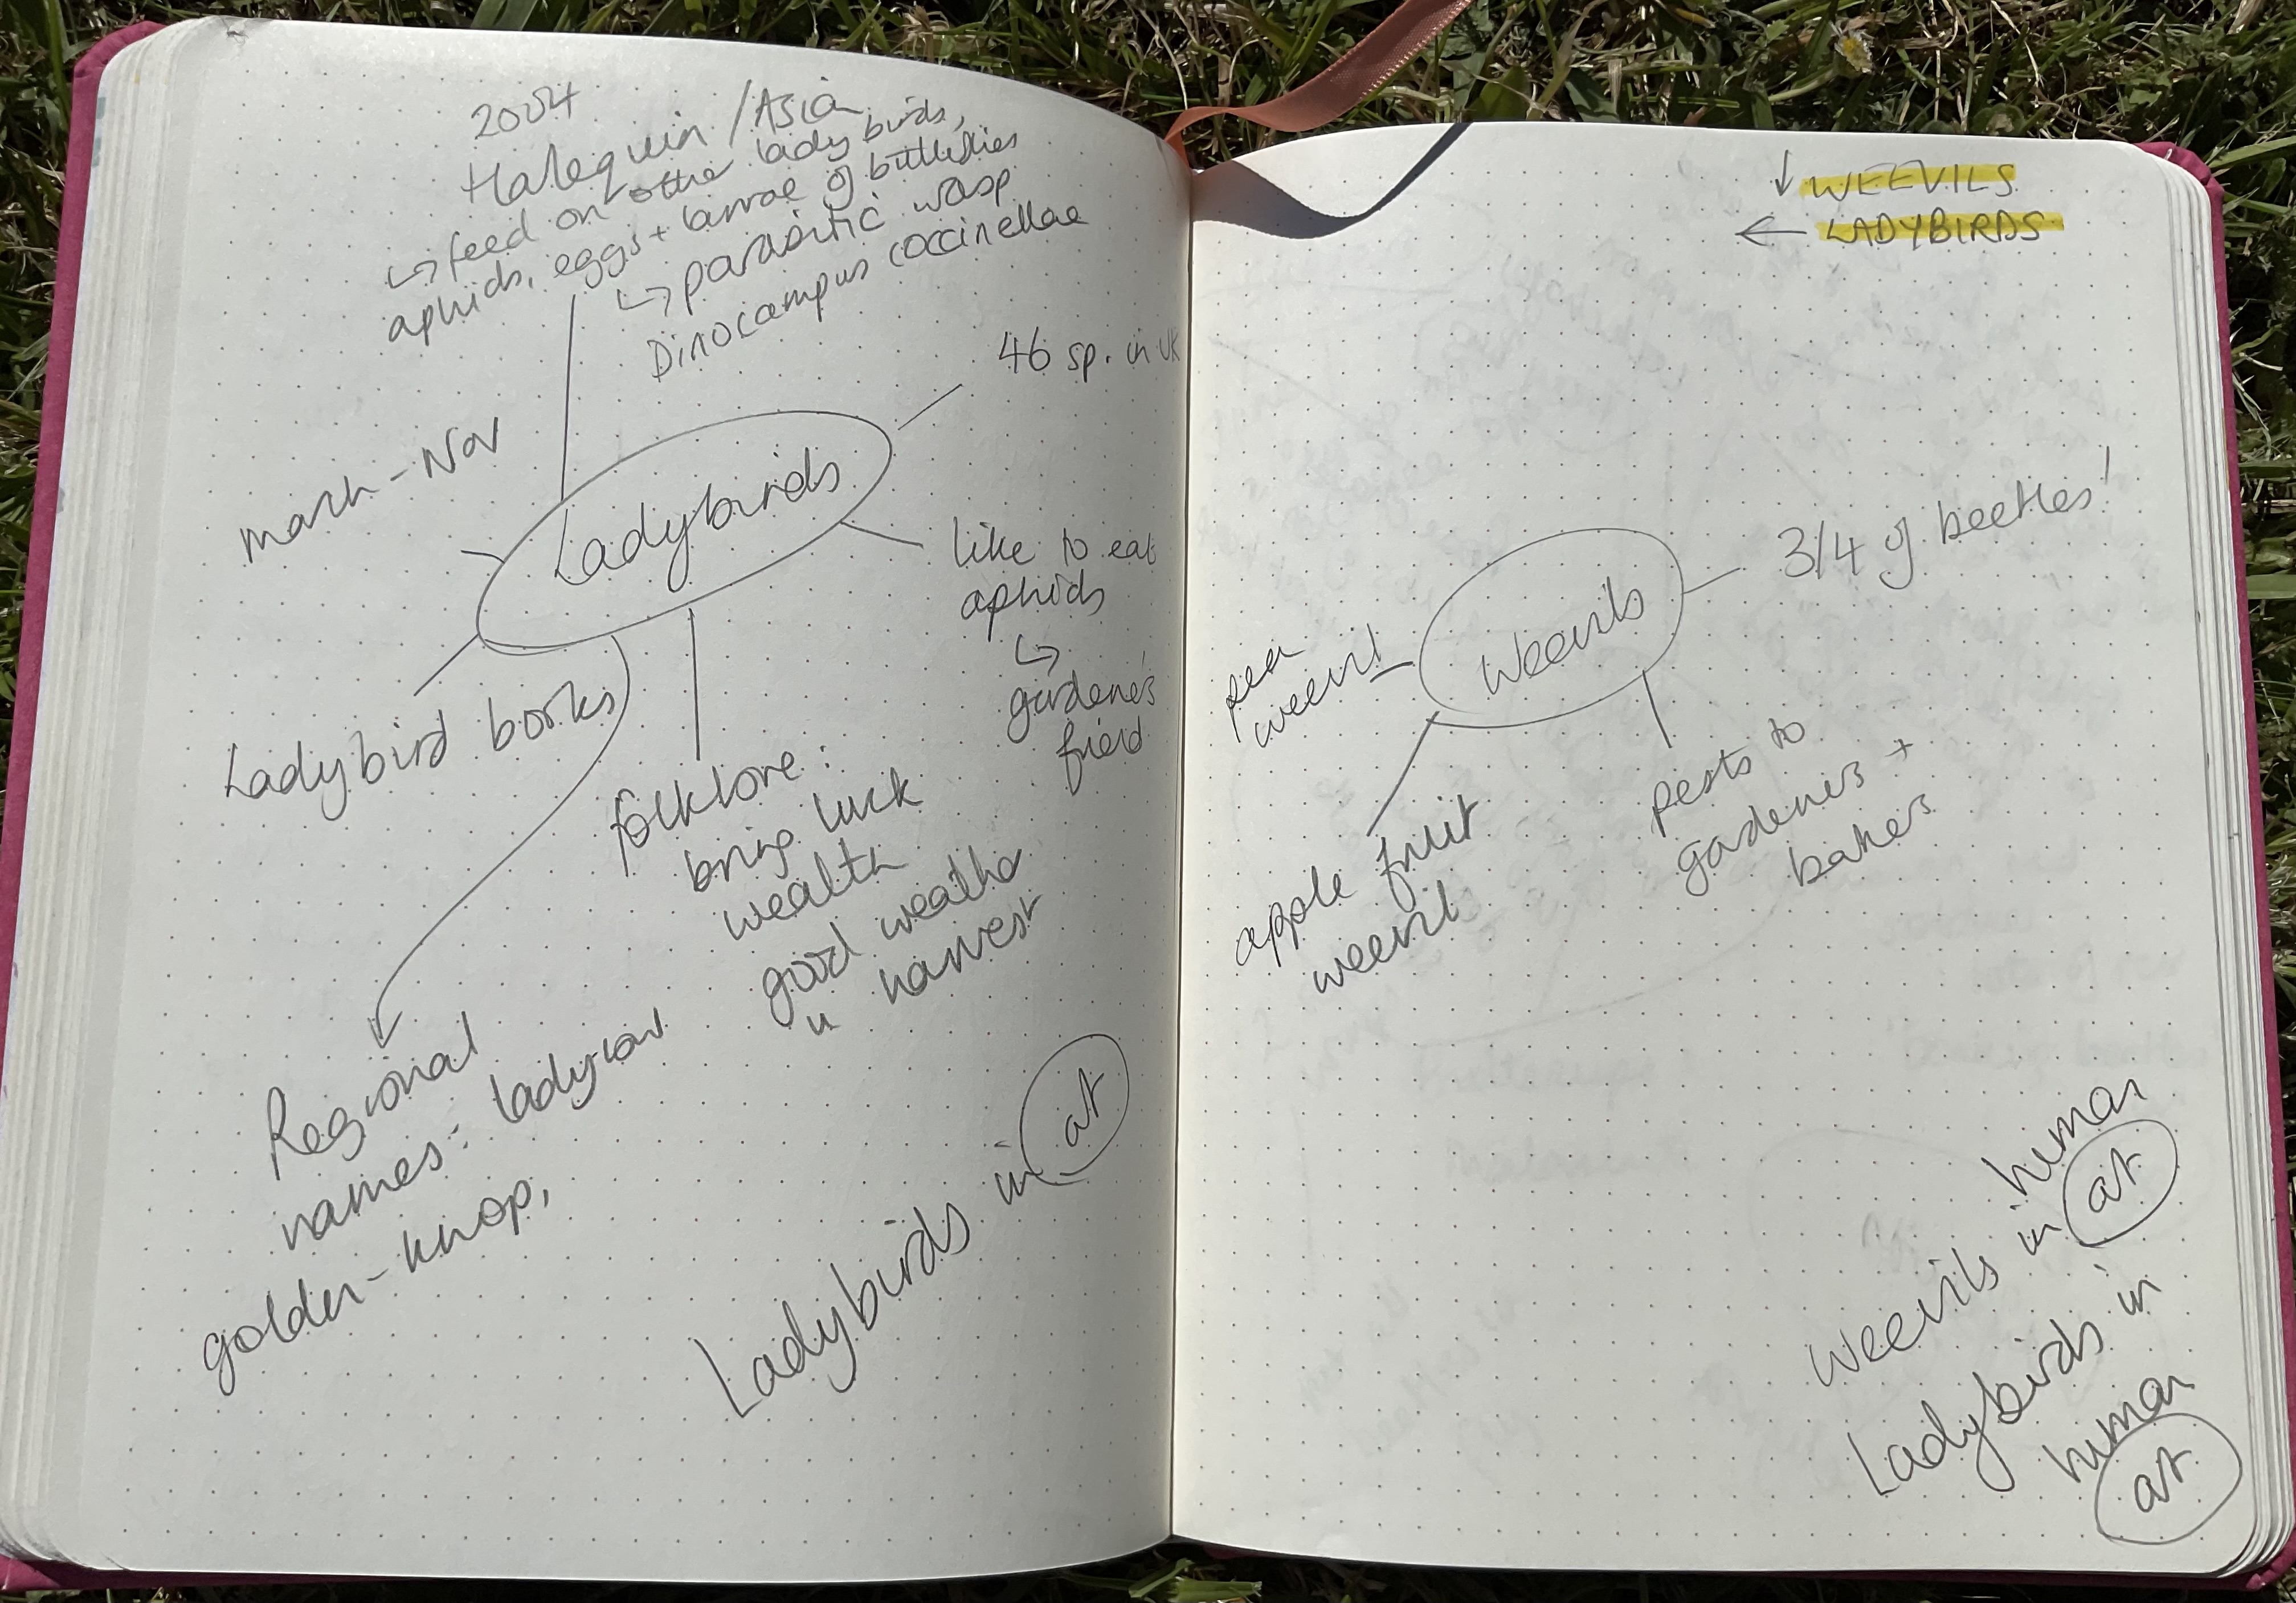 2004
Harlequin / Asian
↳ feed on other ladybirds,
aphids, eggs + larvae of butterflies
↳ parasitic wasp
Dinocampus coccinellae
46 sp. in UK
March - Nov
Ladybirds
like to eat
aphids
↳
gardener's
friend
Ladybird books
folklore:
bring luck
wealth
good weather
" harvest
Regional
names: ladycow
golden-knop,
Ladybirds in art
↓ WEEVILS
← LADYBIRDS
3/4 of beetles!
Weevils
pea
weevil
pests to
gardeners +
bakers
apple fruit
weevil
Weevils in human
art
Ladybirds in
human
art